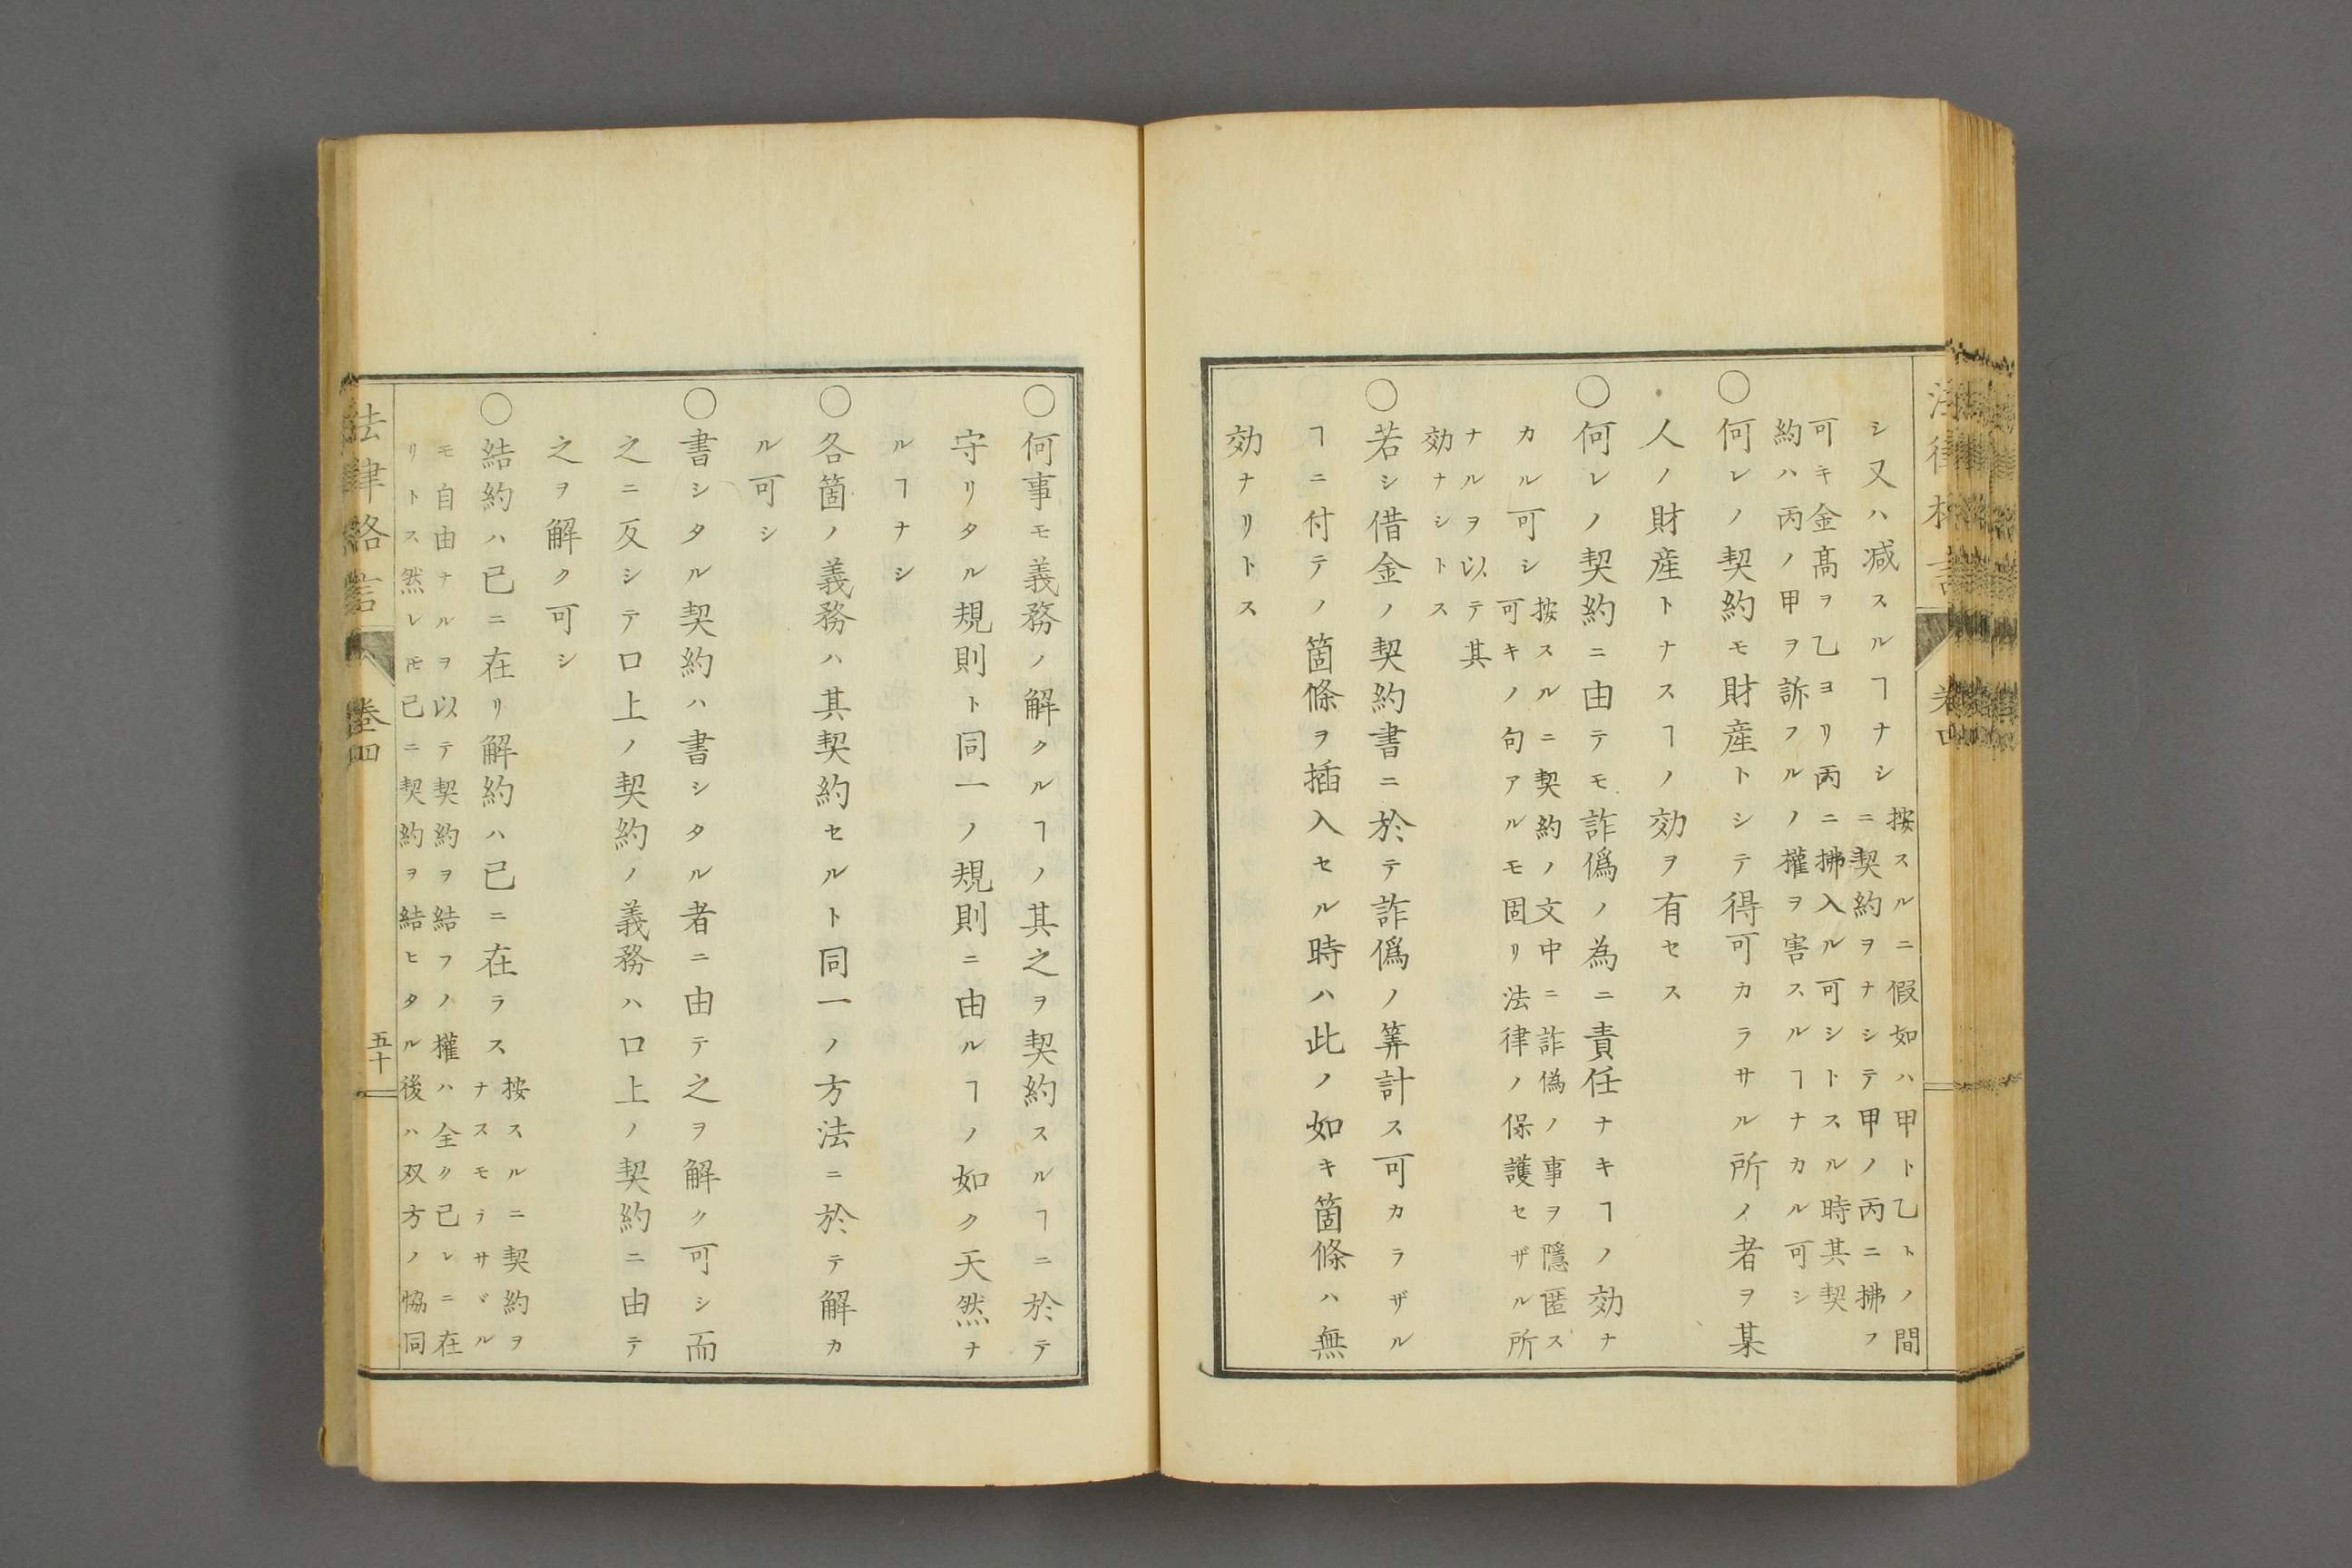 シ又ハ減スルヿナシ
按スルニ假如ハ甲ト乙トノ間
ニ契約ヲナシテ甲ノ丙ニ拂フ
可キ金髙ヲ乙ヨリ丙ニ拂入ル可シトスル時其契
約ハ丙ノ甲ヲ訴フルノ權ヲ害スルヿナカル可シ
○何レノ契約モ財産トシテ得可カラサル所ノ者ヲ某
人ノ財産トナスヿノ効ヲ有セス
○何レノ契約ニ由テモ詐僞ノ為ニ責任ナキヿノ効ナ
カル可シ
按スルニ契約ノ文中ニ詐偽ノ事ヲ隱匿ス
可キノ句アルモ固リ法律ノ保護セザル所
ナルヲ以テ其
効ナシトス
○若シ借金ノ契約書ニ於テ詐僞ノ筭計ス可カラザル
ヿニ付テノ箇條ヲ插入セル時ハ此ノ如キ箇條ハ無
効ナリトス
○何事モ義務ノ解クルヿノ其之ヲ契約スルヿニ於テ
守リタル規則ト同一ノ規則ニ由ルヿノ如ク天然ナ
ルヿナシ
○各箇ノ義務ハ其契約セルト同一ノ方法ニ於テ解カ
ル可シ
○書シタル契約ハ書シタル者ニ由テ之ヲ解ク可シ而
之ニ反シテ口上ノ契約ノ義務ハ口上ノ契約ニ由テ
之ヲ解ク可シ
○結約ハ已ニ在リ解約ハ已ニ在ラス
按スルニ契約ヲ
ナスモラサヾル
モ自由ナルヲ以テ契約ヲ結フノ權ハ全ク已レニ在
リトス然レ𪜈已ニ契約ヲ結ヒタル後ハ双方ノ恊同
法律格言
巻四
五十